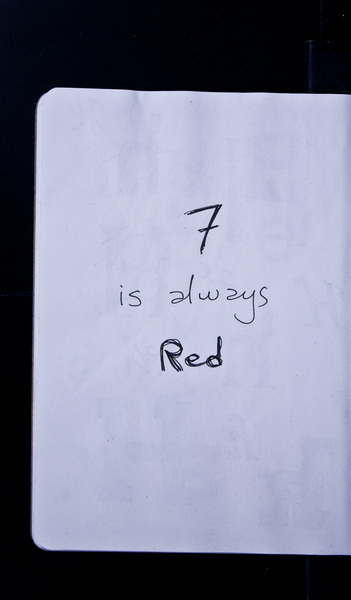 7
is always
Red